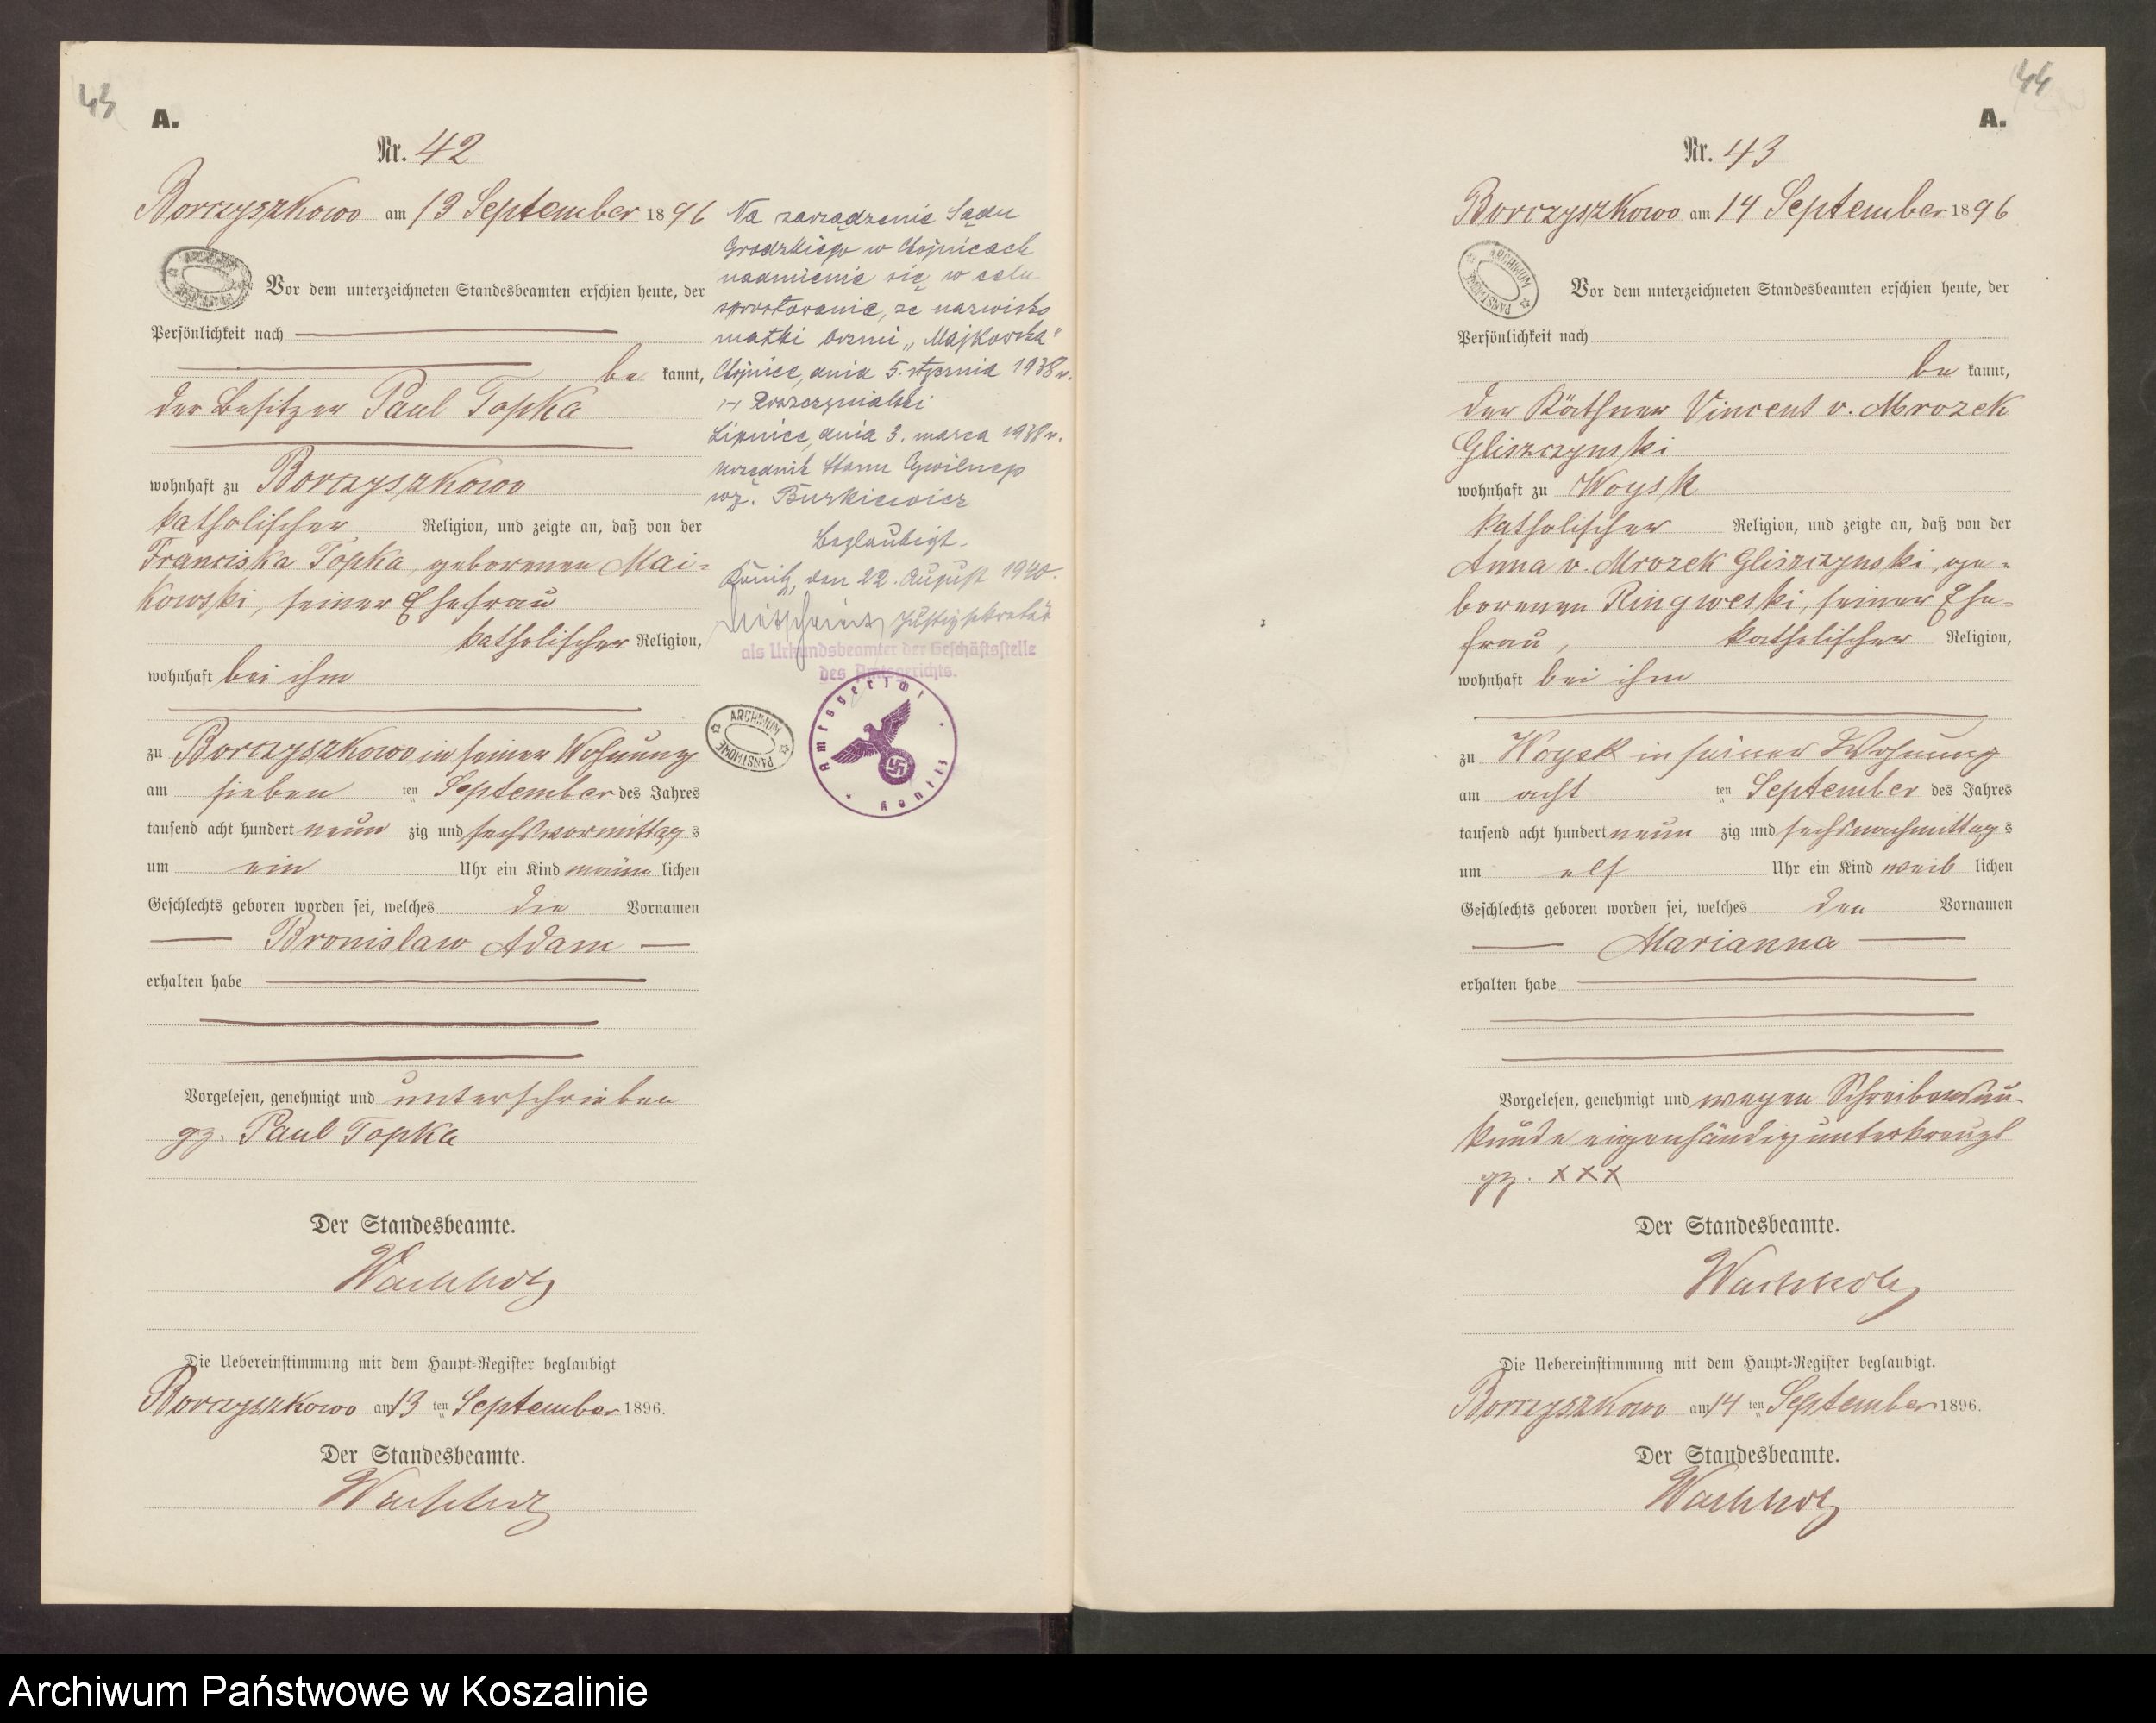 43
A.
Nr. 42
Borczyszkowo am 13 September 1896
Vor dem unterzeichneten Standesbeamten erschien heute, der
Persönlichkeit nach
be kannt,
der Besitzer Paul Topka
wohnhaft zu Borczyszkowo
katholischer Religion, und zeigte an, daß von der
Franciska Topka, geborenen Mai=
kowski, seiner Ehefrau
katholischer Religion,
wohnhaft bei ihm
zu Borczyszkowo in seiner Wohnung
am sieben ten September des Jahres
tausend acht hundert neun zig und sechs vormittag s
um ein Uhr ein Kind männ lichen
Geschlechts geboren worden sei, welches die Vornamen
Bronislaw Adam
erhalten habe
Vorgelesen, genehmigt und unterschrieben
gz. Paul Topka
Der Standesbeamte.
Wachholz
Die Uebereinstimmung mit dem Haupt=Register beglaubigt
Borczyszkowo am 13 ten September 1896.
Der Standesbeamte.
Wachholz
Na zarządzenie Sądu
Grodzkiego w Chojnicach
nadmienia się w celu
sprostowania, że nazwisko
matki brzmi „Majkowska"
Chojnice, dnia 5. stycznia 1938 r.
Lipnica, dnia 3. marca 1938 r.
Urzędnik Stanu Cywilnego
wz. Burkiewicz
Beglaubigt.
Konitz, den 22. August 1940.
Justizsekretär
als Urkundsbeamter der Geschäftsstelle
des Amtsgerichts.
Amtsgericht
Konitz
ARCHIWUM
PAŃSTWOWE
44
A.
Nr. 43
Borczyszkowo am 14 September 1896
ARCHIWUM
PAŃSTWOWE
Vor dem unterzeichneten Standesbeamten erschien heute, der
Persönlichkeit nach
be kannt,
der Käthner Vincent v. Mrozek
Gliszczynski
wohnhaft zu Woysk
katholischer Religion, und zeigte an, daß von der
Anna v. Mrozek Gliszczynski, ge=
borenen Ringweski, seiner Ehe=
frau, katholischer Religion,
wohnhaft bei ihm
zu Woysk in seiner Wohnung
am acht ten September des Jahres
tausend acht hundert neun zig und sechs nachmittag s
um elf Uhr ein Kind weib lichen
Geschlechts geboren worden sei, welches den Vornamen
Marianna
erhalten habe
Vorgelesen, genehmigt und wegen Schreibensun-
kunde eigenhändig unterkreuzt
gz. XXX
Der Standesbeamte.
Wachholz
Die Uebereinstimmung mit dem Haupt=Register beglaubigt.
Borczyszkowo am 14 ten September 1896.
Der Standesbeamte.
Wachholz
Archiwum Państwowe w Koszalinie